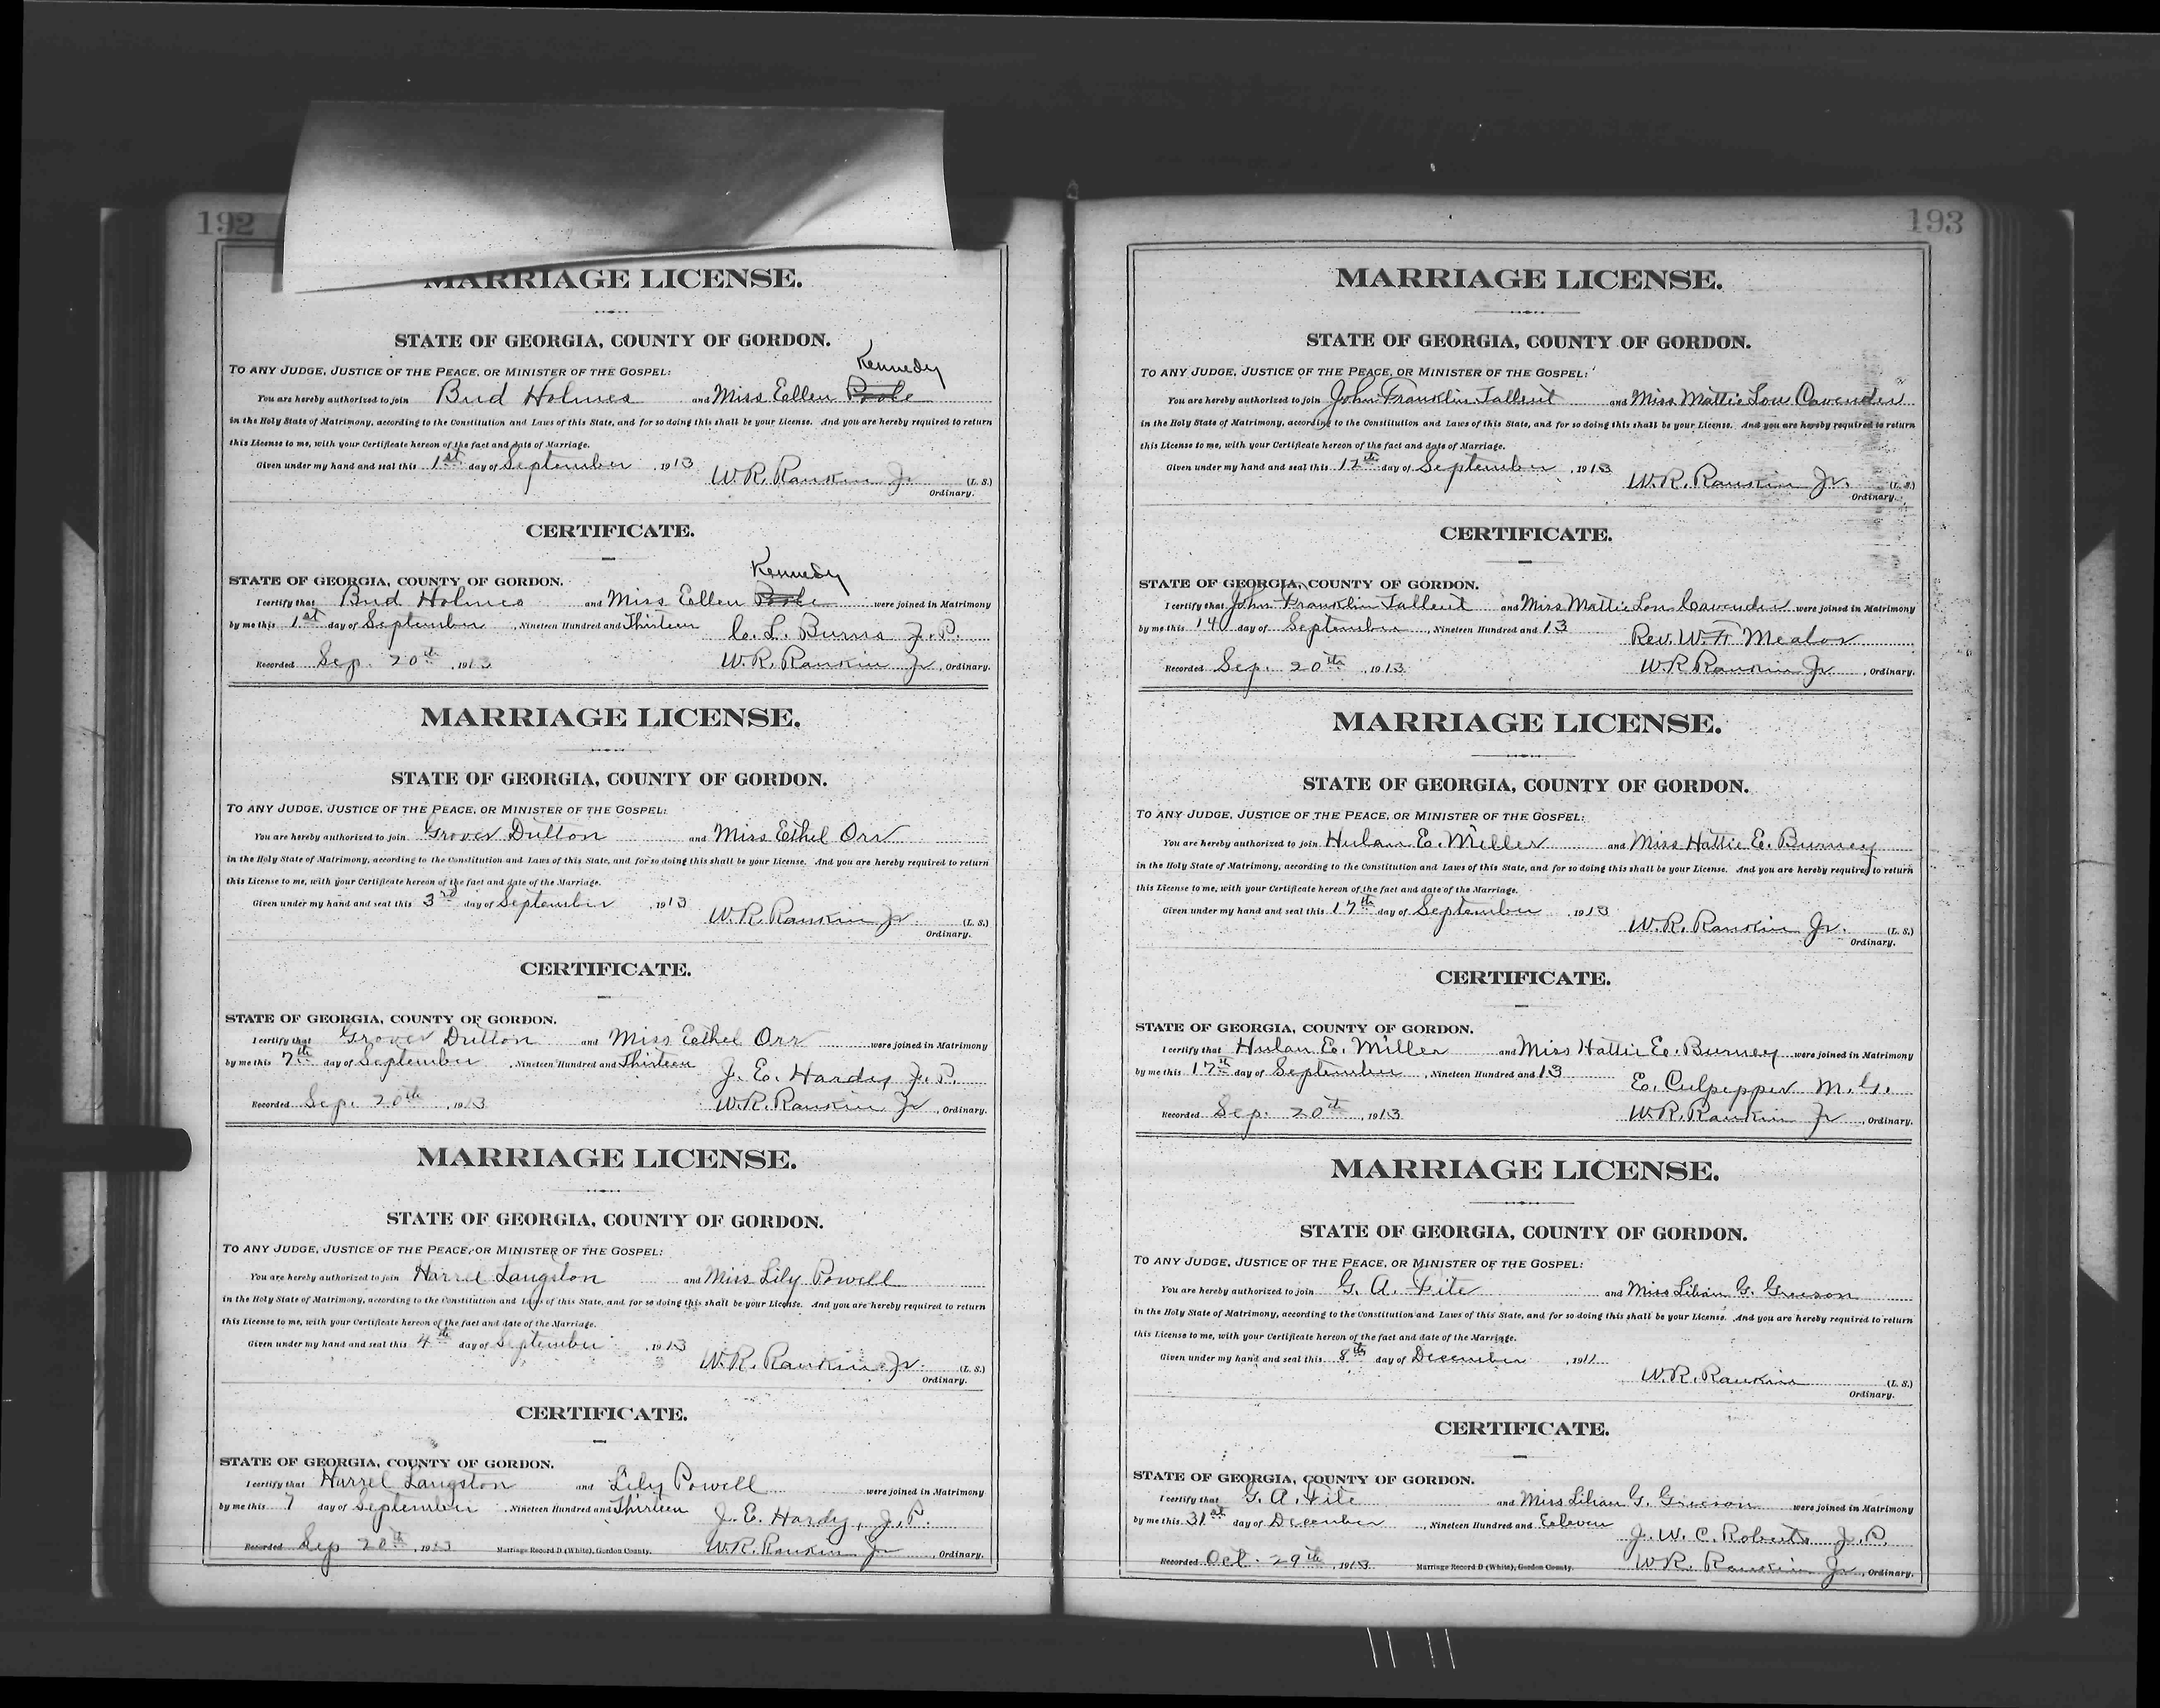 192
MARRIAGE LICENSE.
STATE OF GEORGIA, COUNTY OF GORDON.
Kennedy
TO ANY JUDGE, JUSTICE OF THE PEACE, OR MINISTER OF THE GOSPEL:
You are hereby authorized to join Bud Holmes and Miss Eellen Poole
in the Holy State of Matrimony, according to the Constitution and Laws of this State, and for so doing this shall be your License. And you are hereby required to return
this License to me, with your Certificate hereon of the fact and date of Marriage.
Given under my hand and seal this 1st day of September , 1913
W. R. Rankin Jr. (L. S.)
Ordinary.
CERTIFICATE.
Kennedy
STATE OF GEORGIA, COUNTY OF GORDON.
I certify that Bud Holmes and Miss Eellen Poole were joined in Matrimony
by me this 1st day of September , Nineteen Hundred and Thirteen C. L. Burns J. P.
Recorded Sep. 20th , 1913 W. R. Rankin Jr , Ordinary.
MARRIAGE LICENSE.
STATE OF GEORGIA, COUNTY OF GORDON.
TO ANY JUDGE, JUSTICE OF THE PEACE, OR MINISTER OF THE GOSPEL:
You are hereby authorized to join Grover Dutton and Miss Ethel Orr
in the Holy State of Matrimony, according to the Constitution and Laws of this State, and for so doing this shall be your License. And you are hereby required to return
this License to me, with your Certificate hereon of the fact and date of the Marriage.
Given under my hand and seal this 3rd day of September , 1913
W. R. Rankin Jr (L. S.)
Ordinary.
CERTIFICATE.
STATE OF GEORGIA, COUNTY OF GORDON.
I certify that Grover Dutton and Miss Eethel Orr were joined in Matrimony
by me this 7th day of September , Nineteen Hundred and Thirteen J. E. Hardy J. P.
Recorded Sep. 20th , 1913 W. R. Rankin Jr , Ordinary.
MARRIAGE LICENSE.
STATE OF GEORGIA, COUNTY OF GORDON.
TO ANY JUDGE, JUSTICE OF THE PEACE, OR MINISTER OF THE GOSPEL:
You are hereby authorized to join Harrel Langston and Miss Lily Powell
in the Holy State of Matrimony, according to the Constitution and Laws of this State, and for so doing this shall be your License. And you are hereby required to return
this License to me, with your Certificate hereon of the fact and date of the Marriage.
Given under my hand and seal this 4th day of September , 1913
W. R. Rankin Jr. (L. S.)
Ordinary.
CERTIFICATE.
STATE OF GEORGIA, COUNTY OF GORDON.
I certify that Harrel Langston and Lily Powell were joined in Matrimony
by me this 7 day of September , Nineteen Hundred and Thirteen J. E. Hardy, J. P.
Recorded Sep 20th , 1913 Marriage Record D (White), Gordon County. W. R. Rankin Jr , Ordinary.
193
MARRIAGE LICENSE.
STATE OF GEORGIA, COUNTY OF GORDON.
TO ANY JUDGE, JUSTICE OF THE PEACE, OR MINISTER OF THE GOSPEL:
You are hereby authorized to join John Franklin Tallent and Miss Mattie Lou Cavender
in the Holy State of Matrimony, according to the Constitution and Laws of this State, and for so doing this shall be your License. And you are hereby required to return
this License to me, with your Certificate hereon of the fact and date of Marriage.
Given under my hand and seal this 12th day of September , 1913
W. R. Rankin Jr. (L. S.)
Ordinary.
CERTIFICATE.
STATE OF GEORGIA, COUNTY OF GORDON.
I certify that John Franklin Tallent and Miss Mattie Lou Cavender were joined in Matrimony
by me this 14 day of September , Nineteen Hundred and 13 Rev. W. F. Mealor
Recorded Sep. 20th , 1913 W. R. Rankin Jr , Ordinary.
MARRIAGE LICENSE.
STATE OF GEORGIA, COUNTY OF GORDON.
TO ANY JUDGE, JUSTICE OF THE PEACE, OR MINISTER OF THE GOSPEL:
You are hereby authorized to join Hulan E. Miller and Miss Hattie E. Burney
in the Holy State of Matrimony, according to the Constitution and Laws of this State, and for so doing this shall be your License. And you are hereby required to return
this License to me, with your Certificate hereon of the fact and date of the Marriage.
Given under my hand and seal this 17th day of September , 1913
W. R. Rankin Jr. (L. S.)
Ordinary.
CERTIFICATE.
STATE OF GEORGIA, COUNTY OF GORDON.
I certify that Hulan E. Miller and Miss Hattie E. Burney were joined in Matrimony
by me this 17th day of September , Nineteen Hundred and 13 E. Culpepper M. G.
Recorded Sep. 20th , 1913 W. R. Rankin Jr , Ordinary.
MARRIAGE LICENSE.
STATE OF GEORGIA, COUNTY OF GORDON.
TO ANY JUDGE, JUSTICE OF THE PEACE, OR MINISTER OF THE GOSPEL:
You are hereby authorized to join G. A. Fite and Miss Lilian G. Greeson
in the Holy State of Matrimony, according to the Constitution and Laws of this State, and for so doing this shall be your License. And you are hereby required to return
this License to me, with your Certificate hereon of the fact and date of the Marriage.
Given under my hand and seal this 8th day of December , 1911
W. R. Rankin (L. S.)
Ordinary.
CERTIFICATE.
STATE OF GEORGIA, COUNTY OF GORDON.
I certify that G. A. Fite and Miss Lilian G. Greeson were joined in Matrimony
by me this 31st day of December , Nineteen Hundred and Eeleven J. W. C. Roberts J. P.
Recorded Oct. 29th , 1913 Marriage Record D (White), Gordon County. W. R. Rankin Jr , Ordinary.